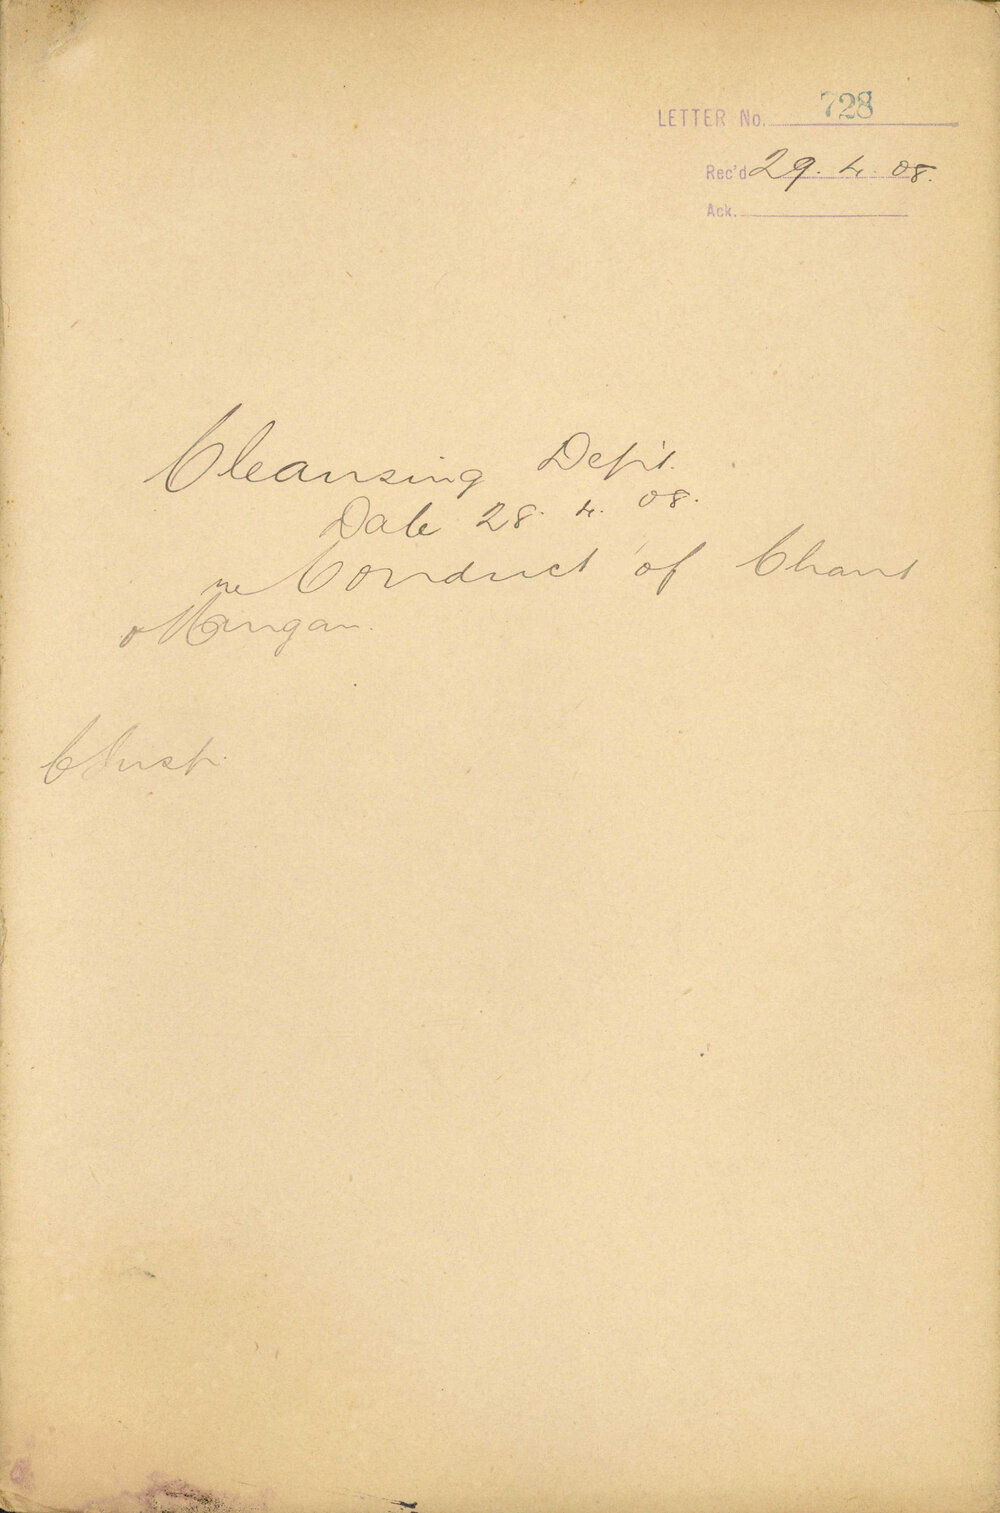 LETTER No. 728
Rec'd 29. 4. 08.
Ack.
Cleansing Dept.
Date 28. 4. 08.
re Conduct of Chant
& Mangan.